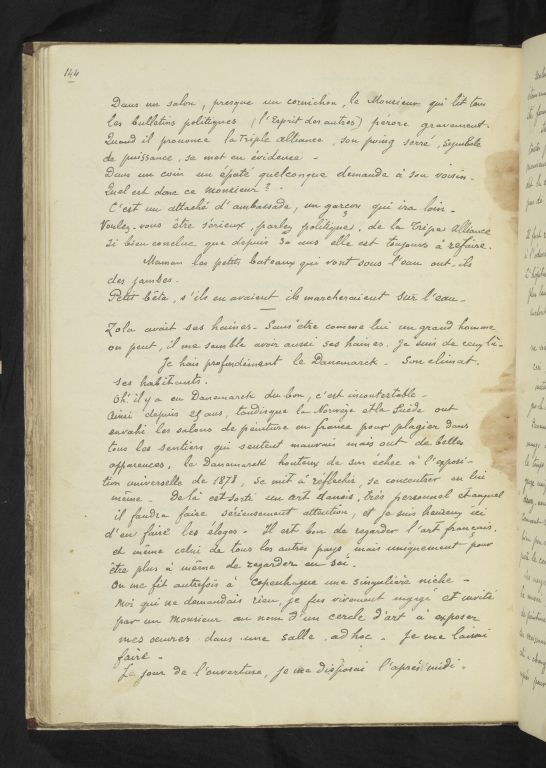 144
Dans un salon, presque un cornichon, le Monsieur qui lit tous
les bulletins politiques (l'Esprit des autres) pérore gravement.
Quand il prononce la triple alliance, son poing serré, symbole
de puissance, se met en évidence -
Dans un coin un épaté quelconque demande à son voisin.
Quel est donc ce monsieur? -
C'est un attaché d'ambassade, un garçon qui ira loin -
Voulez-vous être sérieux, parlez politique, de la Tripes alliance
si bien conclue que depuis 30 ans elle est toujours à refaire.
Maman les petits bateaux qui vont sous l'eau ont-ils
des jambes -
Petit bêta, s'ils en avaient ils marcheraient sur l'eau -
Zola avait ses haines - Sans être comme lui un grand homme
on peut, il me semble avoir aussi ses haines. Je suis de ceux là -
Je hais profondément le Danemarck - Son climat.
ses habitants.
Oh! il y a en Danemarck du bon, c'est incontestable -
Ainsi depuis 25 ans, tandisque la Norwège et la Suède ont
envahi les salons de peinture en france pour plagier dans
tous les sentiers qui sentent mauvais mais ont de belles
apparences, le Danemarck honteux de son échec à l'exposi-
tion universelle de 1878, se mit à réflechir, se concentrer en lui
même - De là est sorti un art danois, très personnel et auquel
il faudra faire sérieusement attention, et je suis heureux ici
d'en faire les éloges - Il est bon de regarder l'art français,
et même celui de tous les autres pays mais uniquement pour
être plus à même de regarder en soi.
On me fit autrefois à Copenhague une singulière niche -
Moi qui ne demandais rien, je fus vivement engagé et invité
par un Monsieur au nom d'un cercle d'art à exposer
mes œuvres dans une salle ad hoc - Je me laissai
faire -
Le jour de l'ouverture, je me disposai l'après midi -